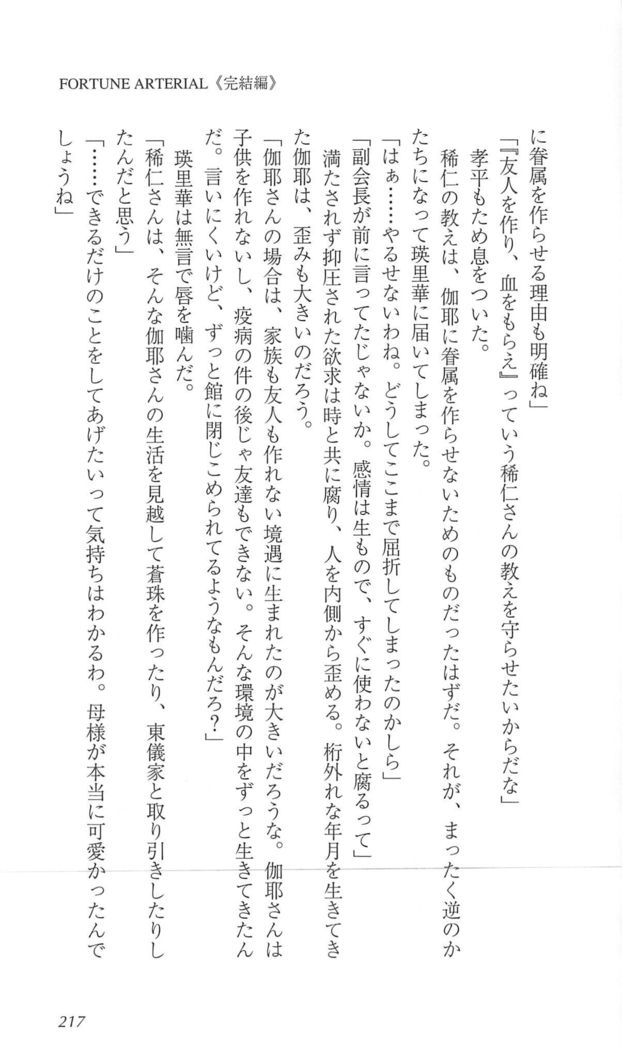 FORTUNE ARTERIAL《完結編》
に眷属を作らせる理由も明確ね」
「『友人を作り、血をもらえ』っていう稀仁さんの教えを守らせたいからだな」
孝平もため息をついた。
稀仁の教えは、伽耶に眷属を作らせないためのものだったはずだ。それが、まったく逆のか
たちになって瑛里華に届いてしまった。
「はぁ……やるせないわね。どうしてここまで屈折してしまったのかしら」
「副会長が前に言ってたじゃないか。感情は生もので、すぐに使わないと腐るって」
満たされず抑圧された欲求は時と共に腐り、人を内側から歪める。桁外れな年月を生きてき
た伽耶は、歪みも大きいのだろう。
「伽耶さんの場合は、家族も友人も作れない境遇に生まれたのが大きいだろうな。伽耶さんは
子供を作れないし、疫病の件の後じゃ友達もできない。そんな環境の中をずっと生きてきたん
だ。言いにくいけど、ずっと館に閉じこめられてるようなもんだろ？」
瑛里華は無言で唇を噛んだ。
「稀仁さんは、そんな伽耶さんの生活を見越して蒼珠を作ったり、東儀家と取り引きしたりし
たんだと思う」
「……できるだけのことをしてあげたいって気持ちはわかるわ。母様が本当に可愛かったんで
しょうね」
217